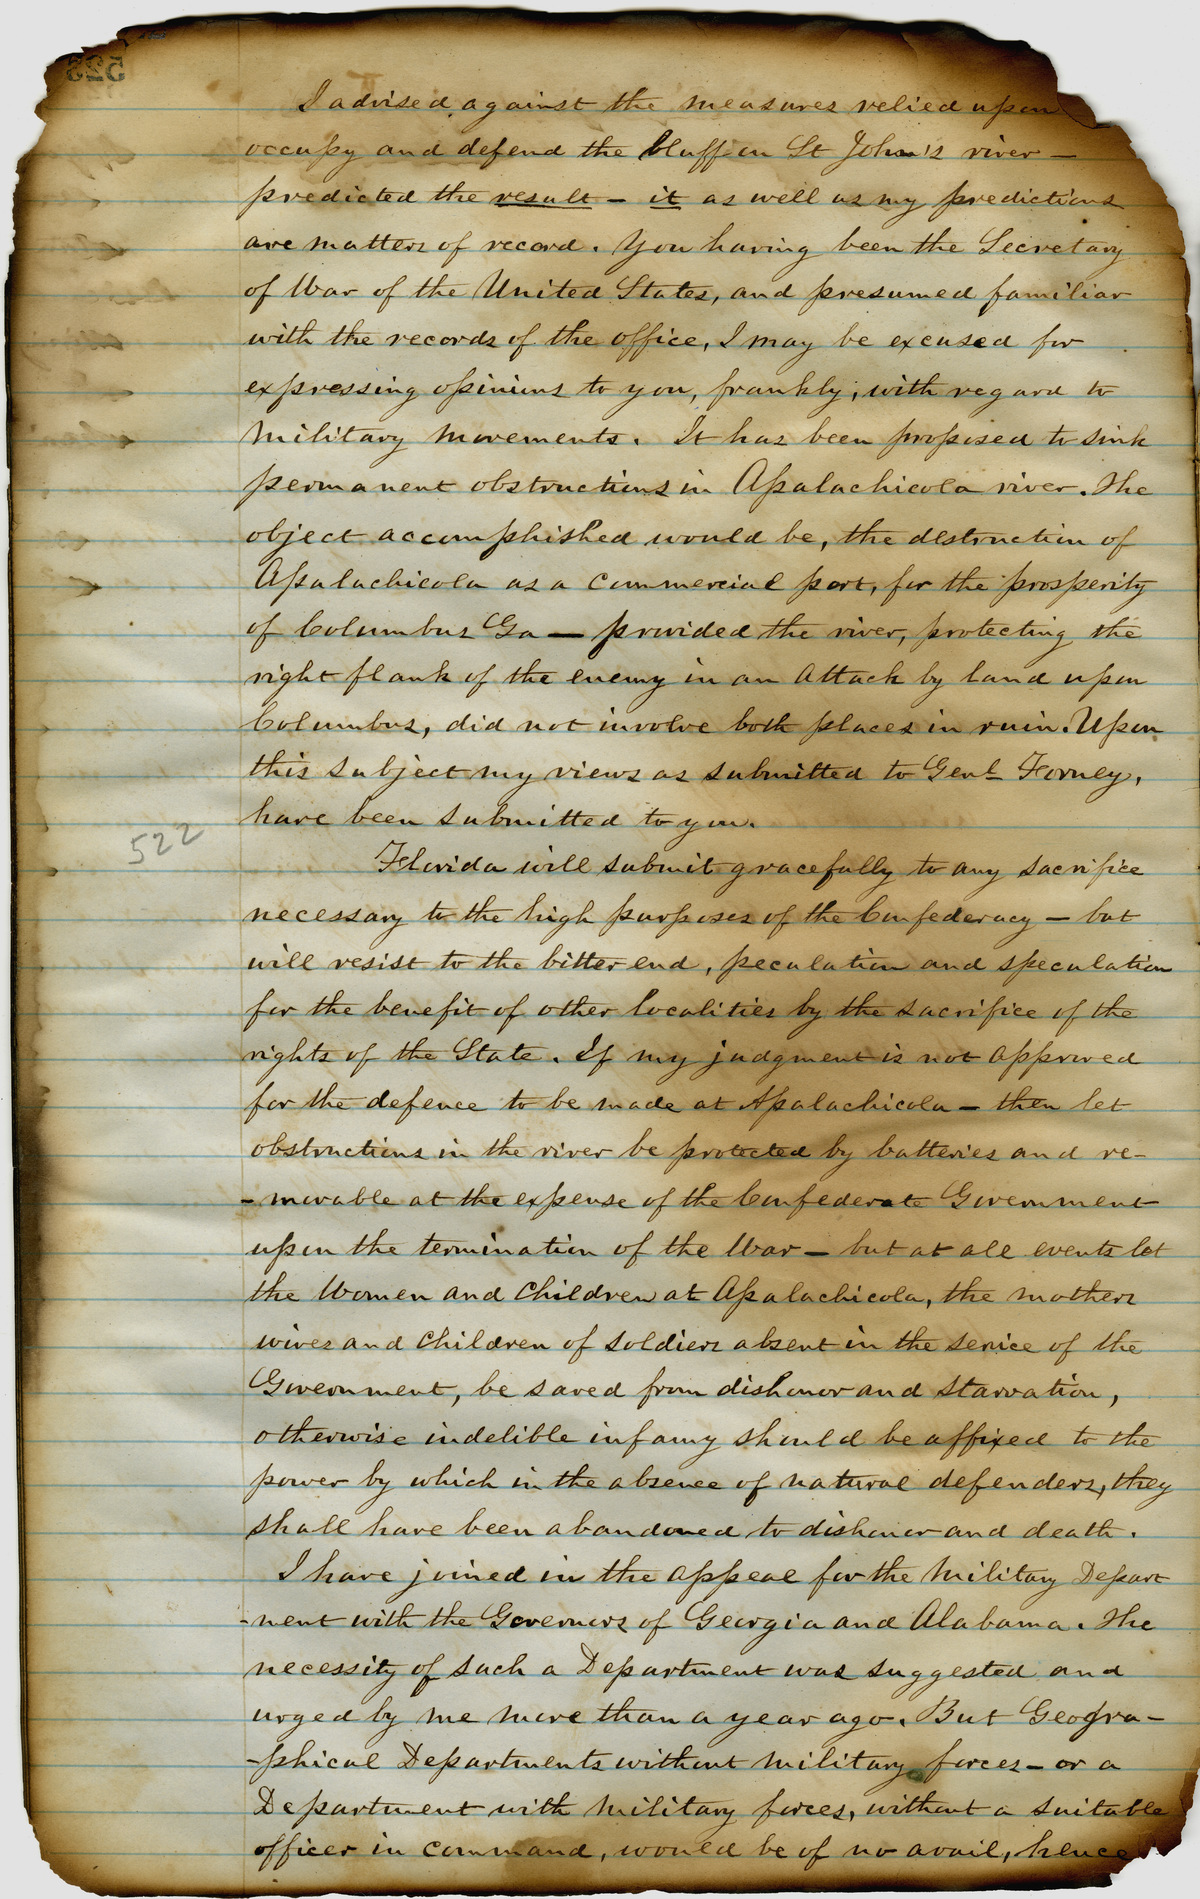 523
I advised against the measures relied upon
occupy and defend the bluff on St John's river —
predicted the result — it as well as my predictions
are matters of record. You having been the Secretary
of War of the United States, and presumed familiar
with the records of the office, I may be excused for
expressing opinions to you, frankly, with regard to
military movements. It has been proposed to sink
permanent obstructions in Apalachicola river. The
object accomphished would be, the destruction of
Apalachicola as a commercial port, for the prosperity
of Columbus Ga — provided the river, protecting the
right flank of the enemy in an attack by land upon
Columbus, did not involve both places in ruin. Upon
this subject my views as submitted to Genl Forney,
have been submitted to you.
522
Florida will submit gracefully to any sacrifice
necessary to the high purposes of the Confederacy — but
will resist to the bitter end, peculation and speculation
for the benefit of other localities by the sacrifice of the
rights of the State. If my judgment is not approved
for the defence to be made at Apalachicola — then let
obstructions in the river be protected by batteries and re-
-movable at the expense of the Confederate Government
upon the termination of the War — but at all events let
the Women and Children at Apalachicola, the mothers
wives and children of soldiers absent in the service of the
Government, be saved from dishonor and starvation,
otherwise indelible infamy should be affixed to the
power by which in the absence of natural defenders, they
shall have been abandoned to dishonor and death.
I have joined in the appeal for the Military Depart
-ment with the Governors of Georgia and Alabama. The
necessity of such a Department was suggested and
urged by me more than a year ago. But Geogra-
-phical Departments without military forces — or a
Department with military forces, without a suitable
officer in command, would be of no avail, hence